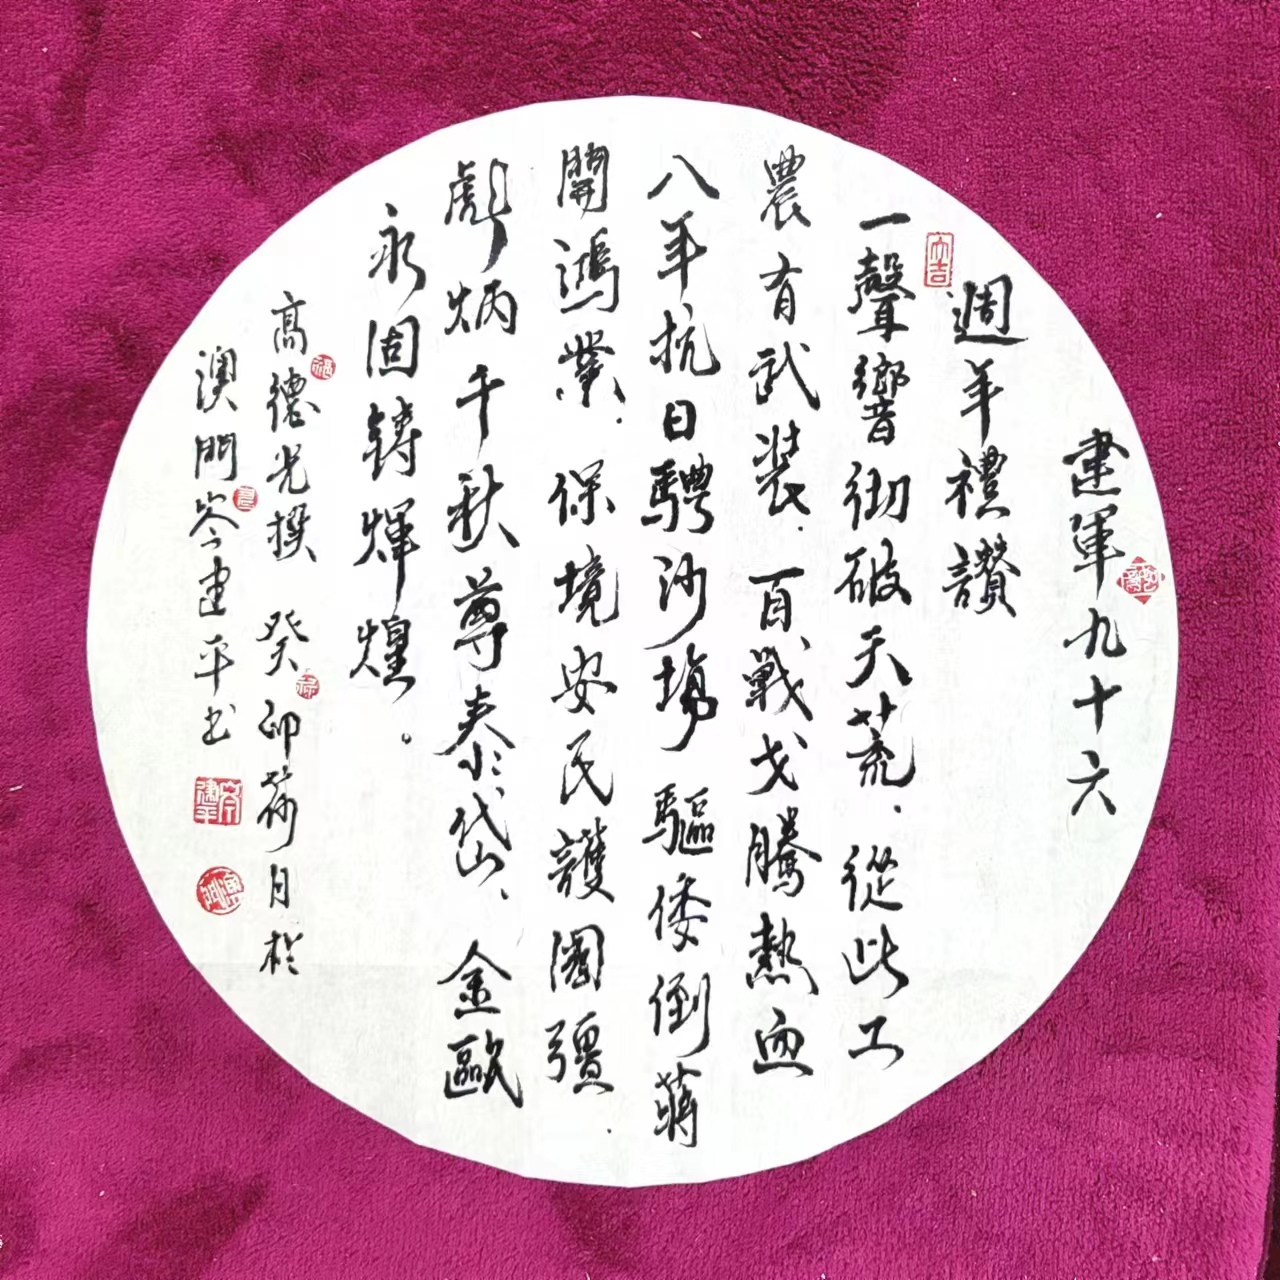 建軍九十六
週年禮讚
一聲響彻破天荒．從此工
農有武裝．百戰戈騰熱血
八年抗日騁沙場驅倭倒蔣
開鴻業．保境安民護國疆．
彪炳千秋尊泰岱、金甌
永固鑄輝煌。
高德光撰 癸卯荷月於
澳門岑建平书
大吉
岑建平